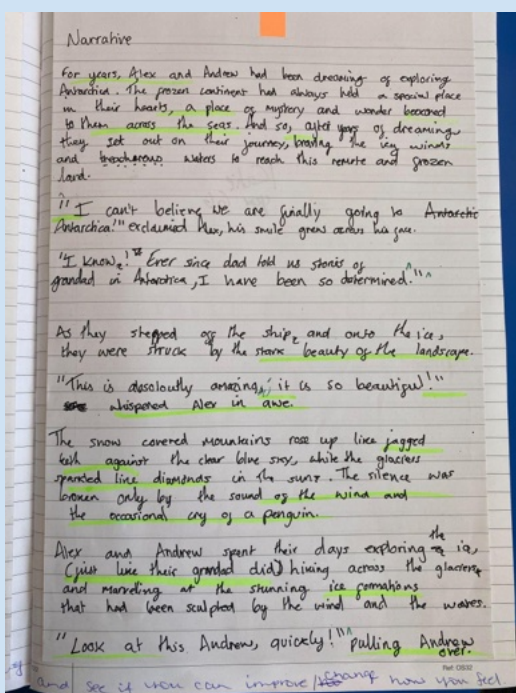 Narrative
For years, Alex and Andrew had been dreaming of exploring
Antarctica. The frozen continent had always held a special place
in their hearts, a place of mystery and wonder
to them across the seas. And so, after years of dreaming
they set out on their journey, braving the icy winds
and treacherous waters to reach this remote and frozen
land.
"I can't believe we are finally going to Antarctic
Antarctica!" exclaimed Alex, his smile grew across his face.
"I know! Ever since dad told us stories of
grandad in Antarctica, I have been so determined."
As they stepped off the ship, and onto the ice,
they were struck by the stark beauty of the landscape.
"This is absoloutly amazing, it is so beautiful!"
whispered Alex in awe.
The snow covered mountains rose up like jagged
teeth against the clear blue sky, while the glaciers
sparkled like diamonds in the sun. The silence was
broken only by the sound of the wind and
the occasional cry of a penguin.
Alex and Andrew spent their days exploring the ice,
(just like their grandad did) hiking across the glaciers
and marveling at the stunning ice formations
that had been sculpted by the wind and the waves.
"Look at this, Andrew, quickly!" pulling Andrew
over.
Ref: OS32
and see if you can improve / change how you feel